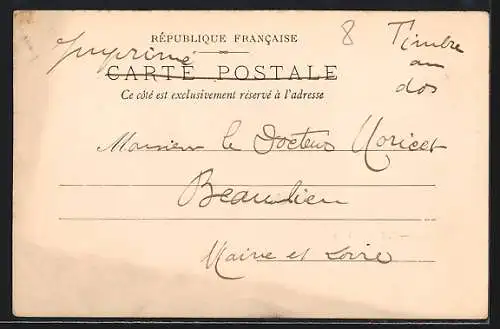 RÉPUBLIQUE FRANÇAISE
8
Timbre
au
dos
Imprimé
CARTE POSTALE
Ce côté est exclusivement réservé à l'adresse
Monsieur le Docteur
Beaulieu
Maine et Loire